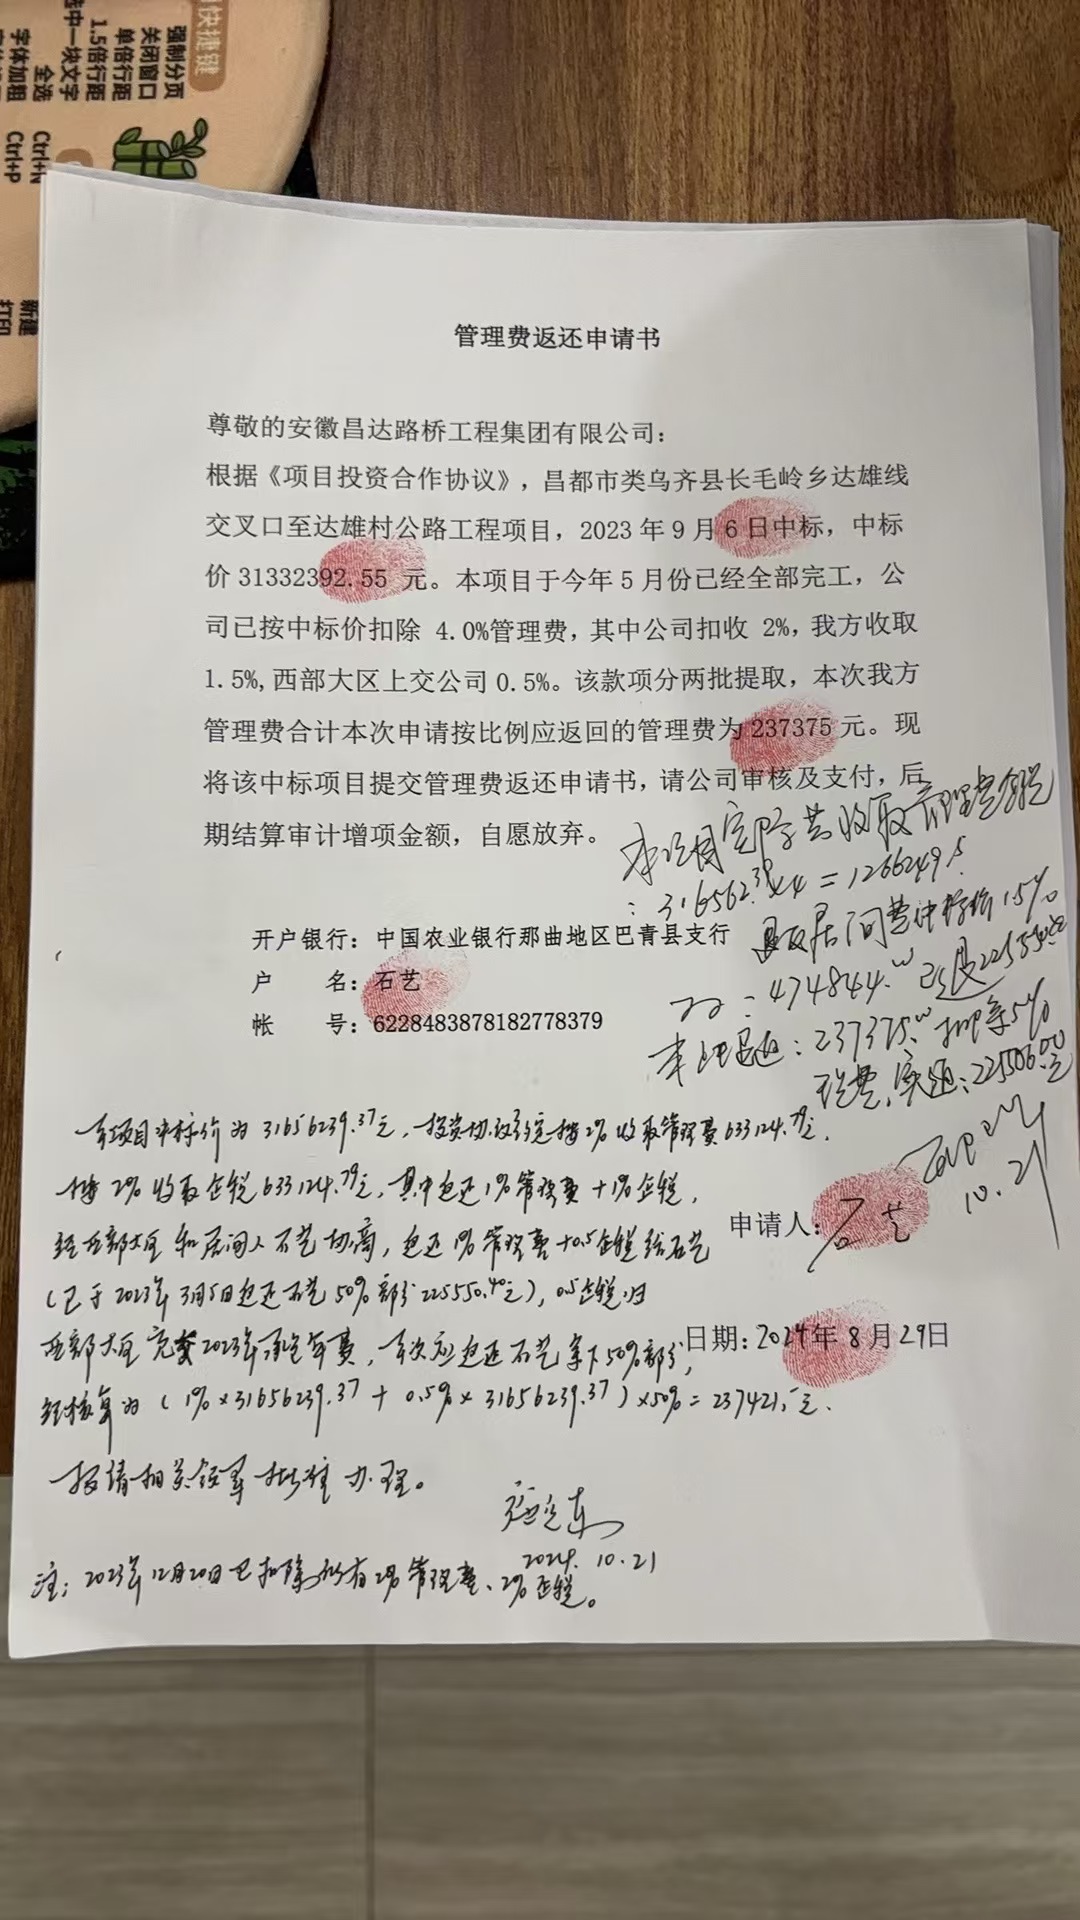 快捷键
强制分页
关闭窗口
单倍行距
1.5倍行距
选中一块文字
全选
字体加粗
Ctrl+N
Ctrl+P
新建
打印
管理费返还申请书
尊敬的安徽昌达路桥工程集团有限公司：
根据《项目投资合作协议》，昌都市类乌齐县长毛岭乡达雄线
交叉口至达雄村公路工程项目，2023年9月6日中标，中标
价31332392.55 元。本项目于今年5月份已经全部完工，公
司已按中标价扣除 4.0%管理费，其中公司扣收 2%，我方收取
1.5%,西部大区上交公司0.5%。该款项分两批提取，本次我方
管理费合计本次申请按比例应返回的管理费为237375元。现
将该中标项目提交管理费返还申请书，请公司审核及支付，后
期结算审计增项金额，自愿放弃。
本项目实际共收取管理费含税
：316562.39×4=1266249.5
退返居间费中标价1.5%
为：474844.00 已退225550.40
本次退返：237375.00 扣除5%
税费，实退：225506.00元
开户银行：中国农业银行那曲地区巴青县支行
户 名：石艺
帐 号：6228483878182778379
10.21
本项目中标价为31656239.37元，投资协议约定按2%收取管理费633124.79元，
按2%收取企税633124.79元，其中返还1%管理费+1%企税，
经西部大区和居间人石艺协商，返还1%管理费+0.5企税给石艺
（已于2023年3月5日返还石艺50%部分225550.40元），0.5企税归
西部大区完成2023年承包年费，本次应返还石艺余下50%部分，
经核算为（1%×31656239.37+0.5%×31656239.37）×50%=237421.元.
申请人：石艺
日期：2024年8月29日
报请相关领导批准办理。
2024.10.21
注：2023年12月20日已扣除所有2%管理费、2%企税。